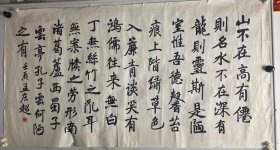 山不在高有僊
則名水不在深有
龍則靈斯是陋
室惟吾德馨苔
痕上階綠草色
入簾青談笑有
鴻儒往來無白
丁無絲竹之亂耳
無案牘之勞形南
諸葛蘆西蜀子
雲亭孔子云何陋
之有